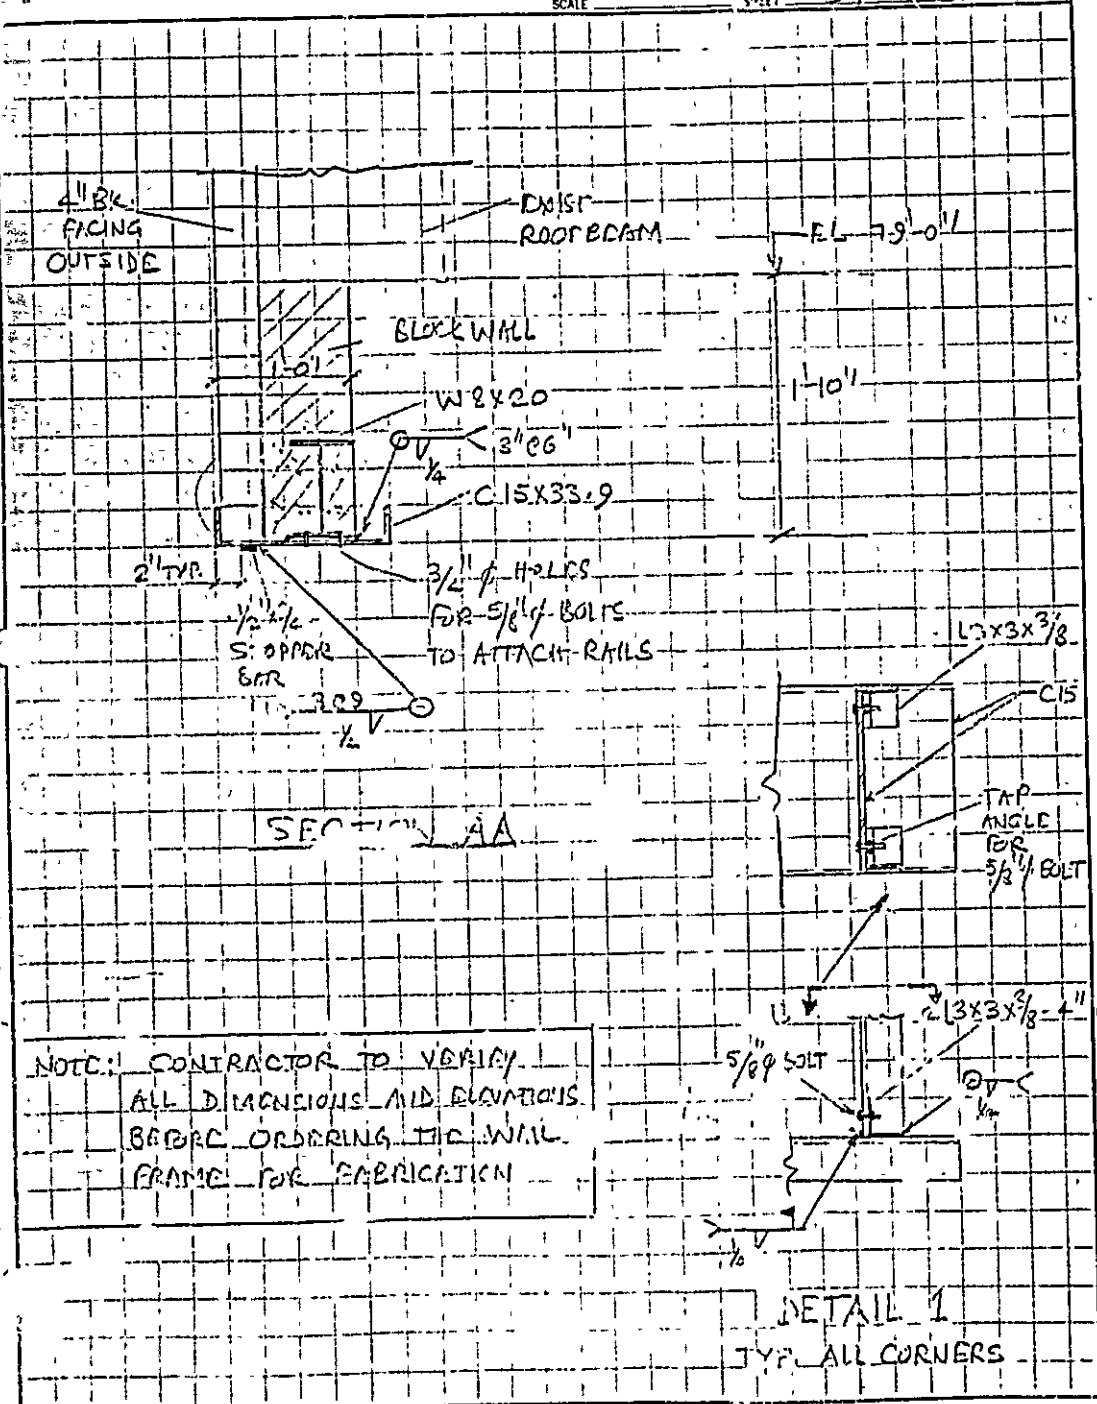 SCALE
4" BK.
FACING
OUTSIDE
EXIST
ROOF BEAM
EL 79'-0"
BLOCK WALL
1'-0"
1'-10"
W 8X20
3"@6"
1/4
C 15X33.9
2" TYP.
3/4" φ HOLES
FOR 5/8" φ BOLTS
TO ATTACH RAILS
STOPPER
BAR
3@9
1/2
SECTION AA
L3X3X3/8
C15
TAP
ANGLE
FOR
5/8" BOLT
L3X3X3/8-4"
5/8" φ BOLT
NOTE: CONTRACTOR TO VERIFY
ALL DIMENSIONS AND ELEVATIONS
BEFORE ORDERING THE WALL
FRAME FOR FABRICATION
DETAIL 1
TYP. ALL CORNERS